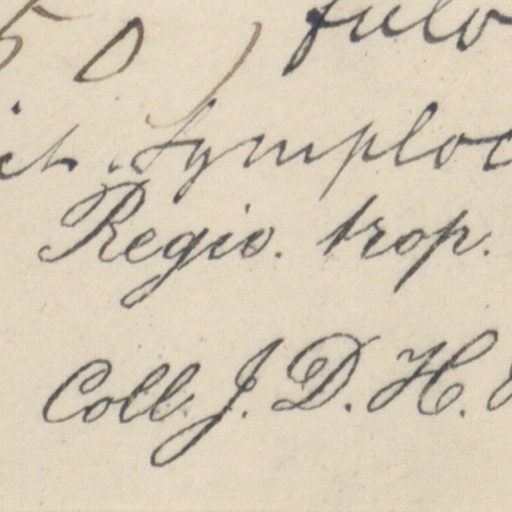 50) fulv
ich. Symploc
Regio. trop.
Coll. J. D. H.